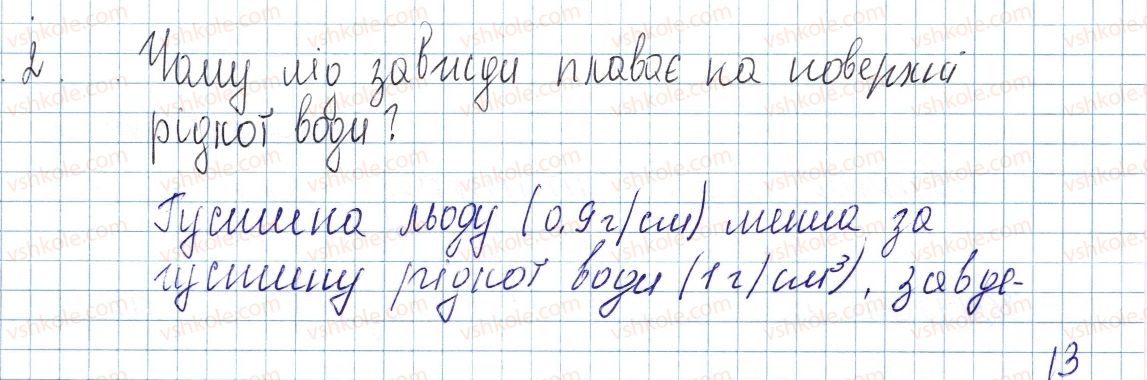 2. Чому лід завжди плаває на поверхні
рідкої води?
Густина льоду (0,9 г/см) менша за
густину рідкої води (1 г/см³), завде-
13